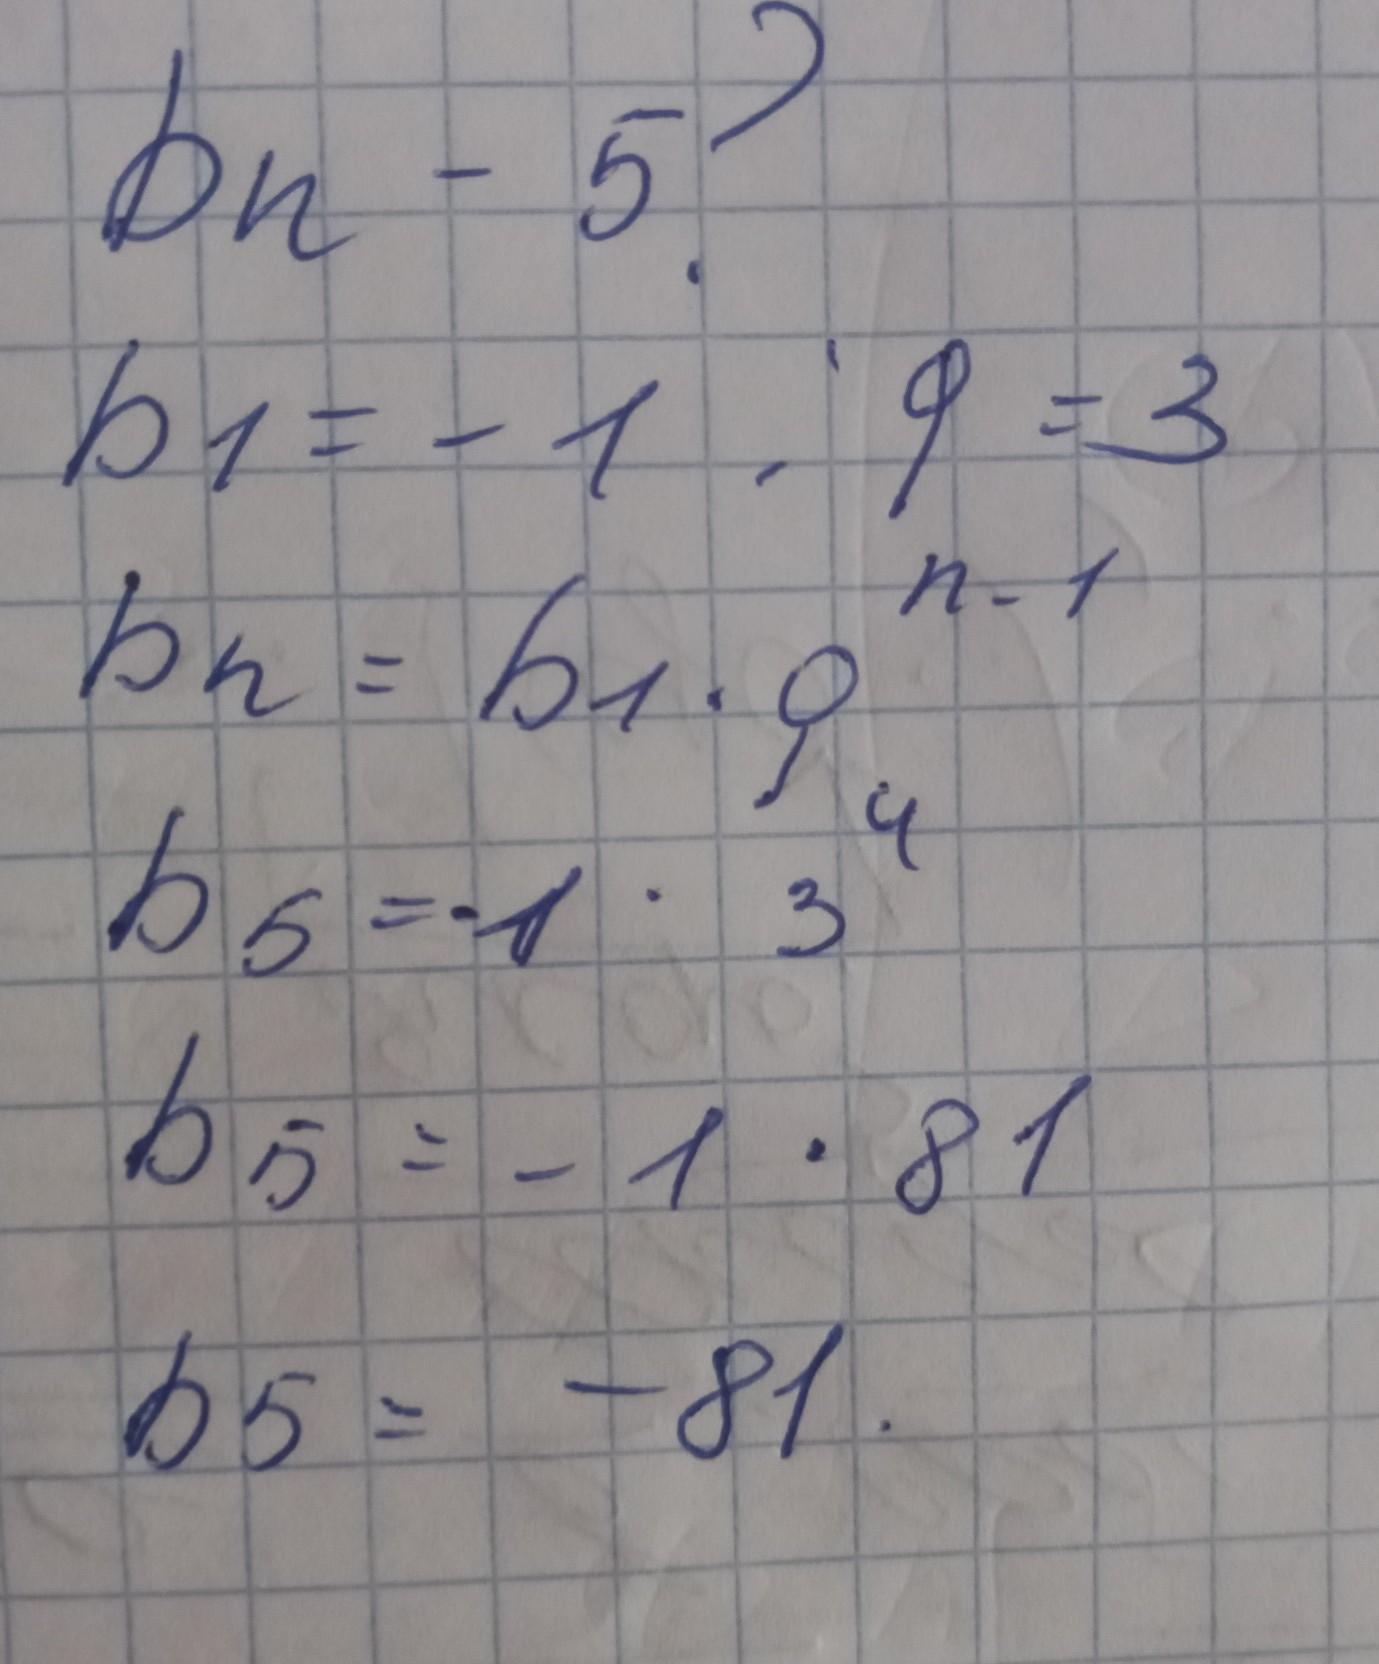 bn - 5?
b1 = - 1, q = 3
bn = b1 · q^n-1
b5 = -1 · 3^4
b5 = - 1 · 81
b5 = -81.